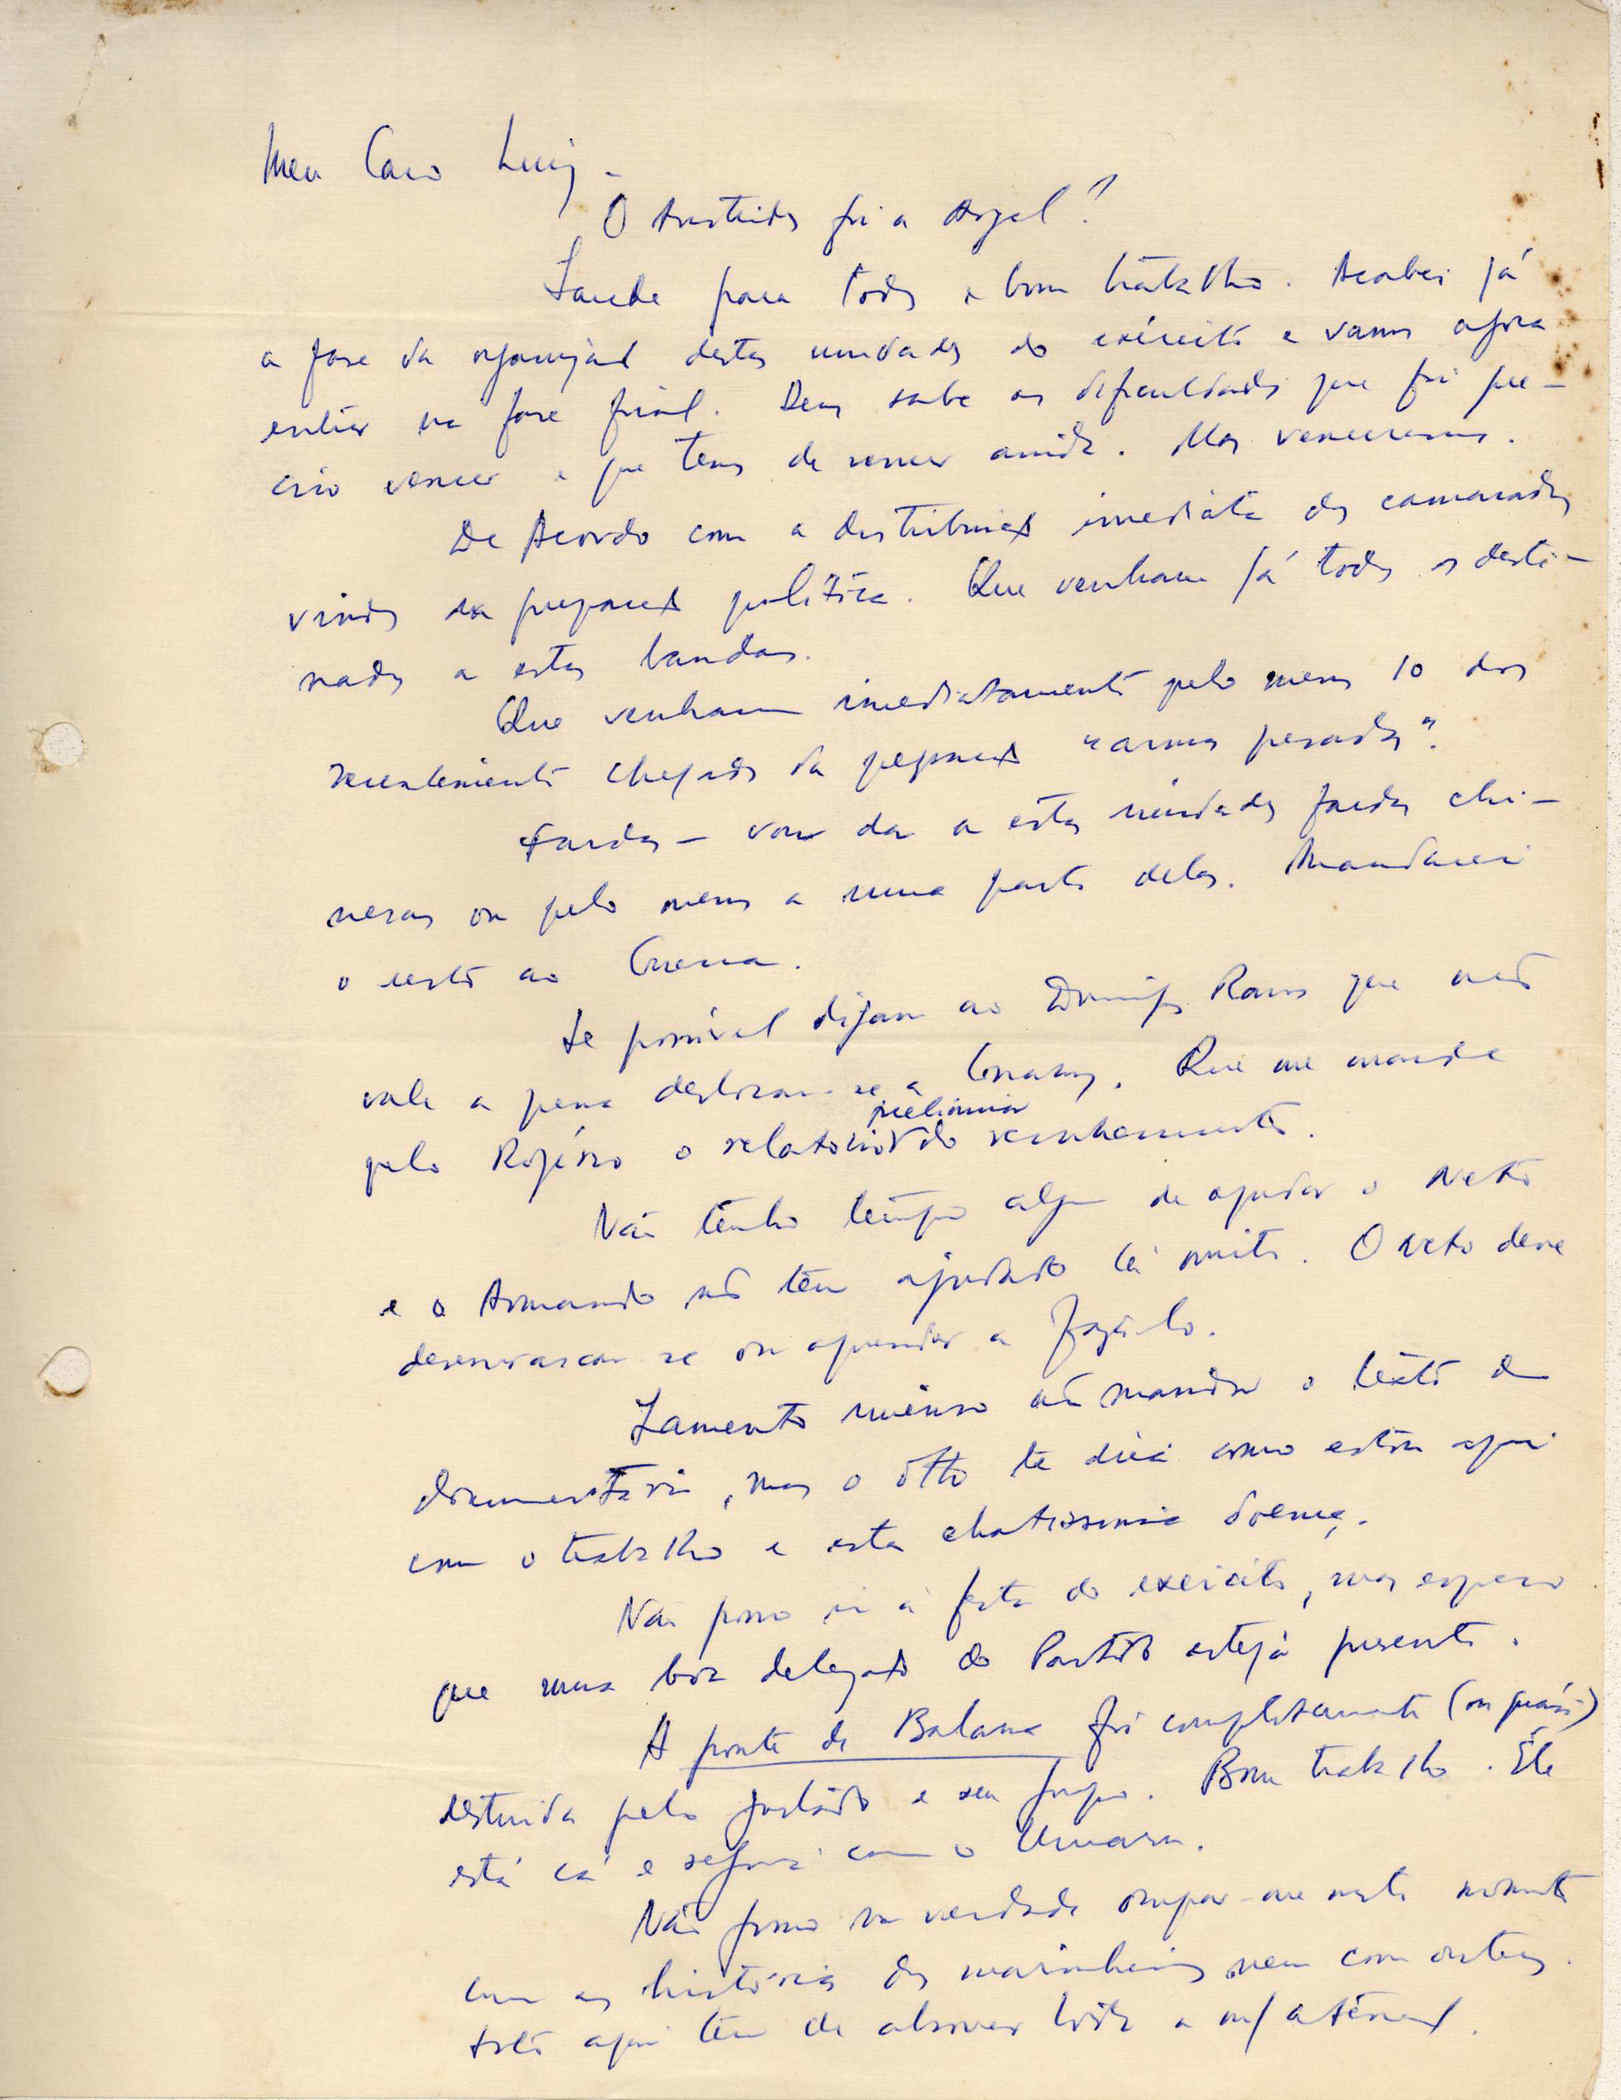 Meu Caro Luiz -
O Aristides foi a Argel?
Saude para todos e bom trabalho. Acabei já
a fase da organização destas unidades do exército e vamos agora
entrar na fase final. Deus sabe as dificuldades que foi pre-
ciso vencer e que temos de vencer ainda. Mas venceremos.
De Acordo com a distribuição imediata dos camaradas
vindos da preparação política. Que venham já todos os desti-
nados a estas bandas.
Que venham imediatamente pelo menos 10 dos
recentemente chegados da preparação "armas pesadas".
Fardas - vou dar a estas unidades fardas chi-
nesas ou pelo menos a uma parte delas. Mandarei
o resto ao
Se possível digam ao Domingos Ramos que não
vale a pena deslocar-se a Conakry. Que me mande
pelo Rogério o relatório preliminar do reconhecimento.
Não tenho tempo algum de ajudar o Neto
e o Armando não tem ajudado lá muito. O Neto deve
desenrascar-se ou aprender a fazê-lo.
Lamento imenso não mandar o texto do
documentário, mas o Otto te dirá como estou aqui
com o trabalho e esta chatíssima doença.
Não posso ir à festa do exército, mas espero
que uma boa delegação do Partido esteja presente.
A ponte de Balana foi completamente (ou quási)
destruida pelo e seu grupo. Bom trabalho. Êle
está cá e seguirá com o Umaro.
Não posso na verdade ocupar-me neste momento
com as histórias dos marinheiros nem com outras.
Isto aqui tem de absorver toda a m/ atenção.